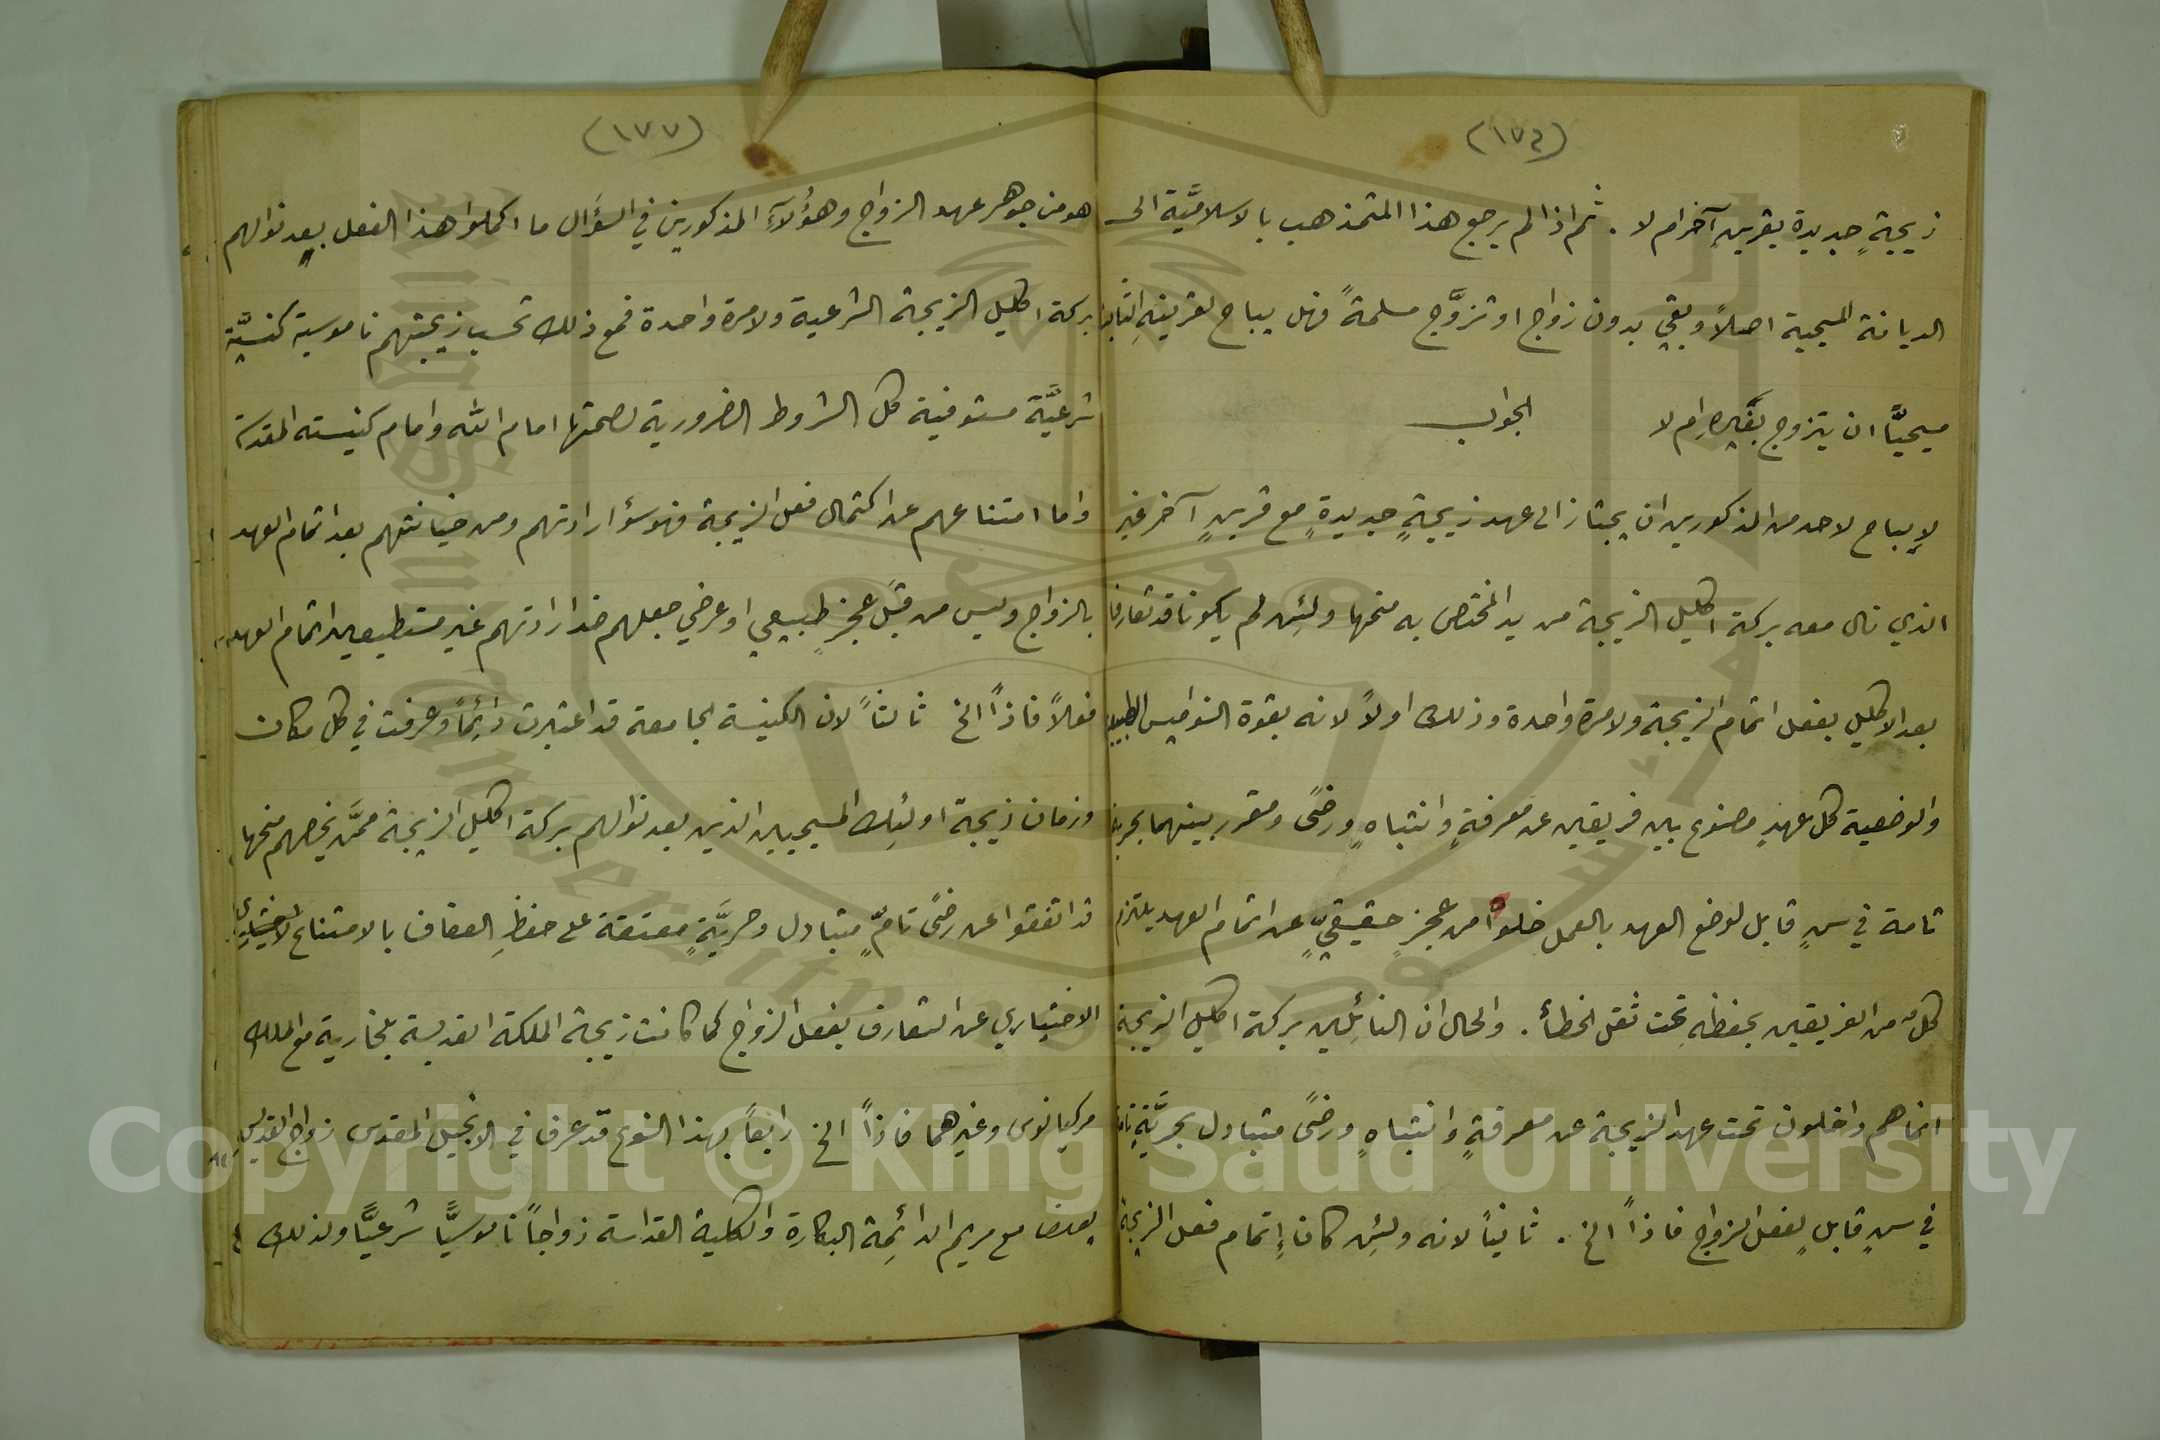 (١٧٦)
زيجيةٍ جديدة بقرينٍ آخر ام لا . ثم اذا لم يرجع هذا المتمذهب بالاسلاميَّة الى
الديانة المسيحية اصلاً وبقي بدون زواج او تزوَّج مسلمةً فهل يباح لقرينهِ الثابت
مسيحيًّا ان يتزوج بغيرهِ ام لا الجواب
لا يباح لاحد من المذكورين ان يجتاز الى عهد زيجيةٍ جديدةٍ مع قرينٍ آخر غير
الذي نال معه بركة اكليل الزيجة من يد المختص به منحها ولئن لم يكونا قد تعارفا
بعد الاكليل بفعل اتمام الزيجة ولا مرة واحدة وذلك اولاً لانه بقوة النواميس الطبيعية
والوضعية كل عهدٍ مصنوع بين فريقين عن معرفةٍ وانتباهٍ ورضًى ومقرر بينهما بحرية
تامة في سنٍ قابل لوضع العهد بالعمل خلوًا من عجزٍ حقيقيٍّ عن اتمام العهد يلتزم
كل من الفريقين بحفظهِ تحت ثقل الخطأ . والحال ان النائلين بركة اكليل الزيجة
انما هم داخلون تحت عهد الزيجة عن معرفةٍ وانتباهٍ ورضًى متبادل بحريَّةٍ تامة
في سنٍ قابلٍ لفعل الزواج فاذاً الخ . ثانياً لانه ولئن كان إتمام فعل الزيجة
(١٧٧)
هو من جوهر عهد الزواج وهؤلآءِ المذكورين في السؤَال ما اكملوا هذا الفعل بعد نوالهم
بركة اكليل الزيجة الشرعية ولا مرة واحدة فمع ذلك تحسب زيجتهم ناموسية كنسيَّة
شرعيَّة مستوفية كل الشروط الضرورية لصحتها امام الله وامام كنيسته المقدسة
واما امتناعهم عن اكتمال فعل الزيجة فهو سؤ ارادتهم ومن خيانتهم بعد اتمام العهد
بالزواج وليس من قبَل عجزٍ طبيعي او عرضي جعلهم ضد ارادتهم غير مستطيعين اتمام العهد
فعلاً فاذاً الخ ثالثاً لان الكنيسة الجامعة قد اعتبرت دائمًا وعرفت في كل مكان
وزمان زيجة اولئك المسيحيين الذين بعد نوالهم بركة اكليل الزيجة ممَّن يخصهم منحها
قد اتفقوا عن رضًى تامٍّ متبادل وحريَّةٍ معتقة على حفظِ العفاف بالامتناع
الاختياري عن التعارف بفعل الزواج كما كانت زيجة الملكة القديسة بلخارية مع الملك
مركيانوس وغيرهما فاذاً الخ رابعاً بهذا النوع قد عرف في الانجيل المقدس زواج القديس
يوسف مع مريم الدائمة البكارة والكلية القداسة زواجاً ناموسيًّا شرعيًّا ولذلك
Copyright © King Saud University
King Saud University